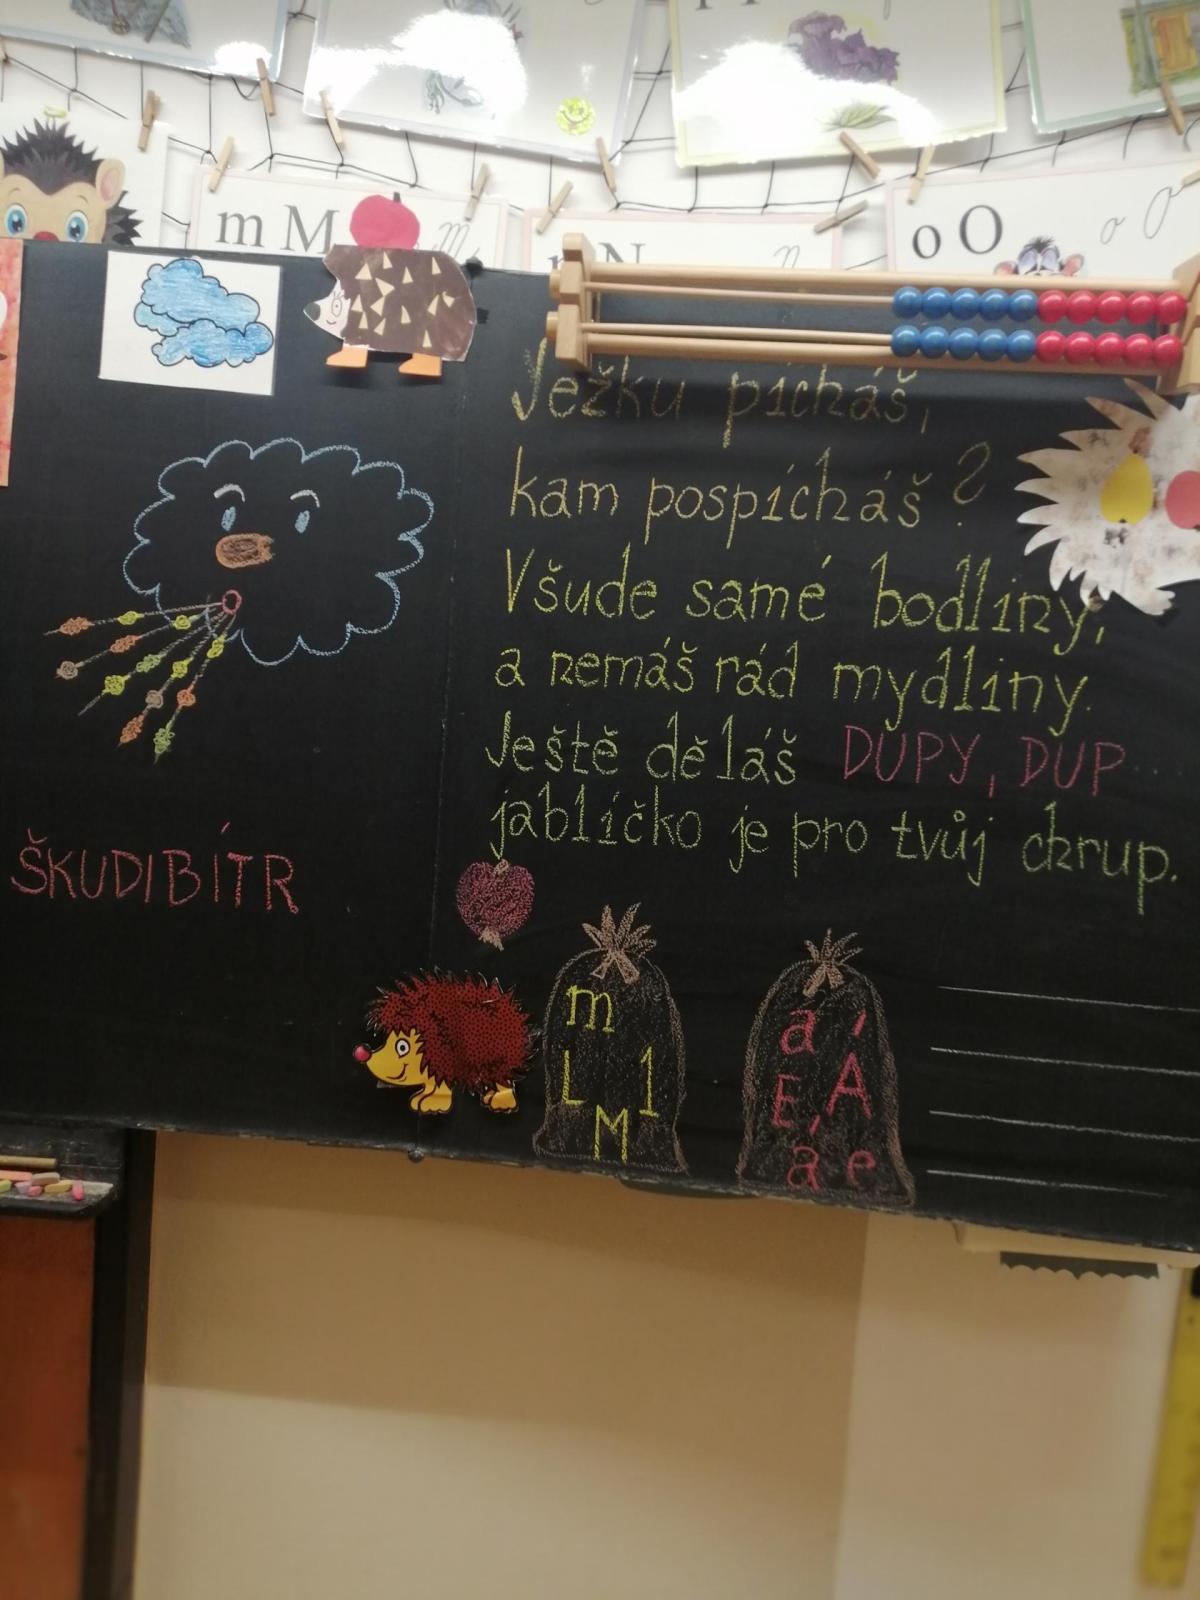 m M m
N n
o O o O
Ježku pícháš,
kam pospícháš?
Všude samé bodliny,
a nemáš rád mydliny.
Ještě děláš DUPY, DUP...
jablíčko je pro tvůj chrup.
ŠKUDIBÍTR
m
L l
M
a
E, A
a e